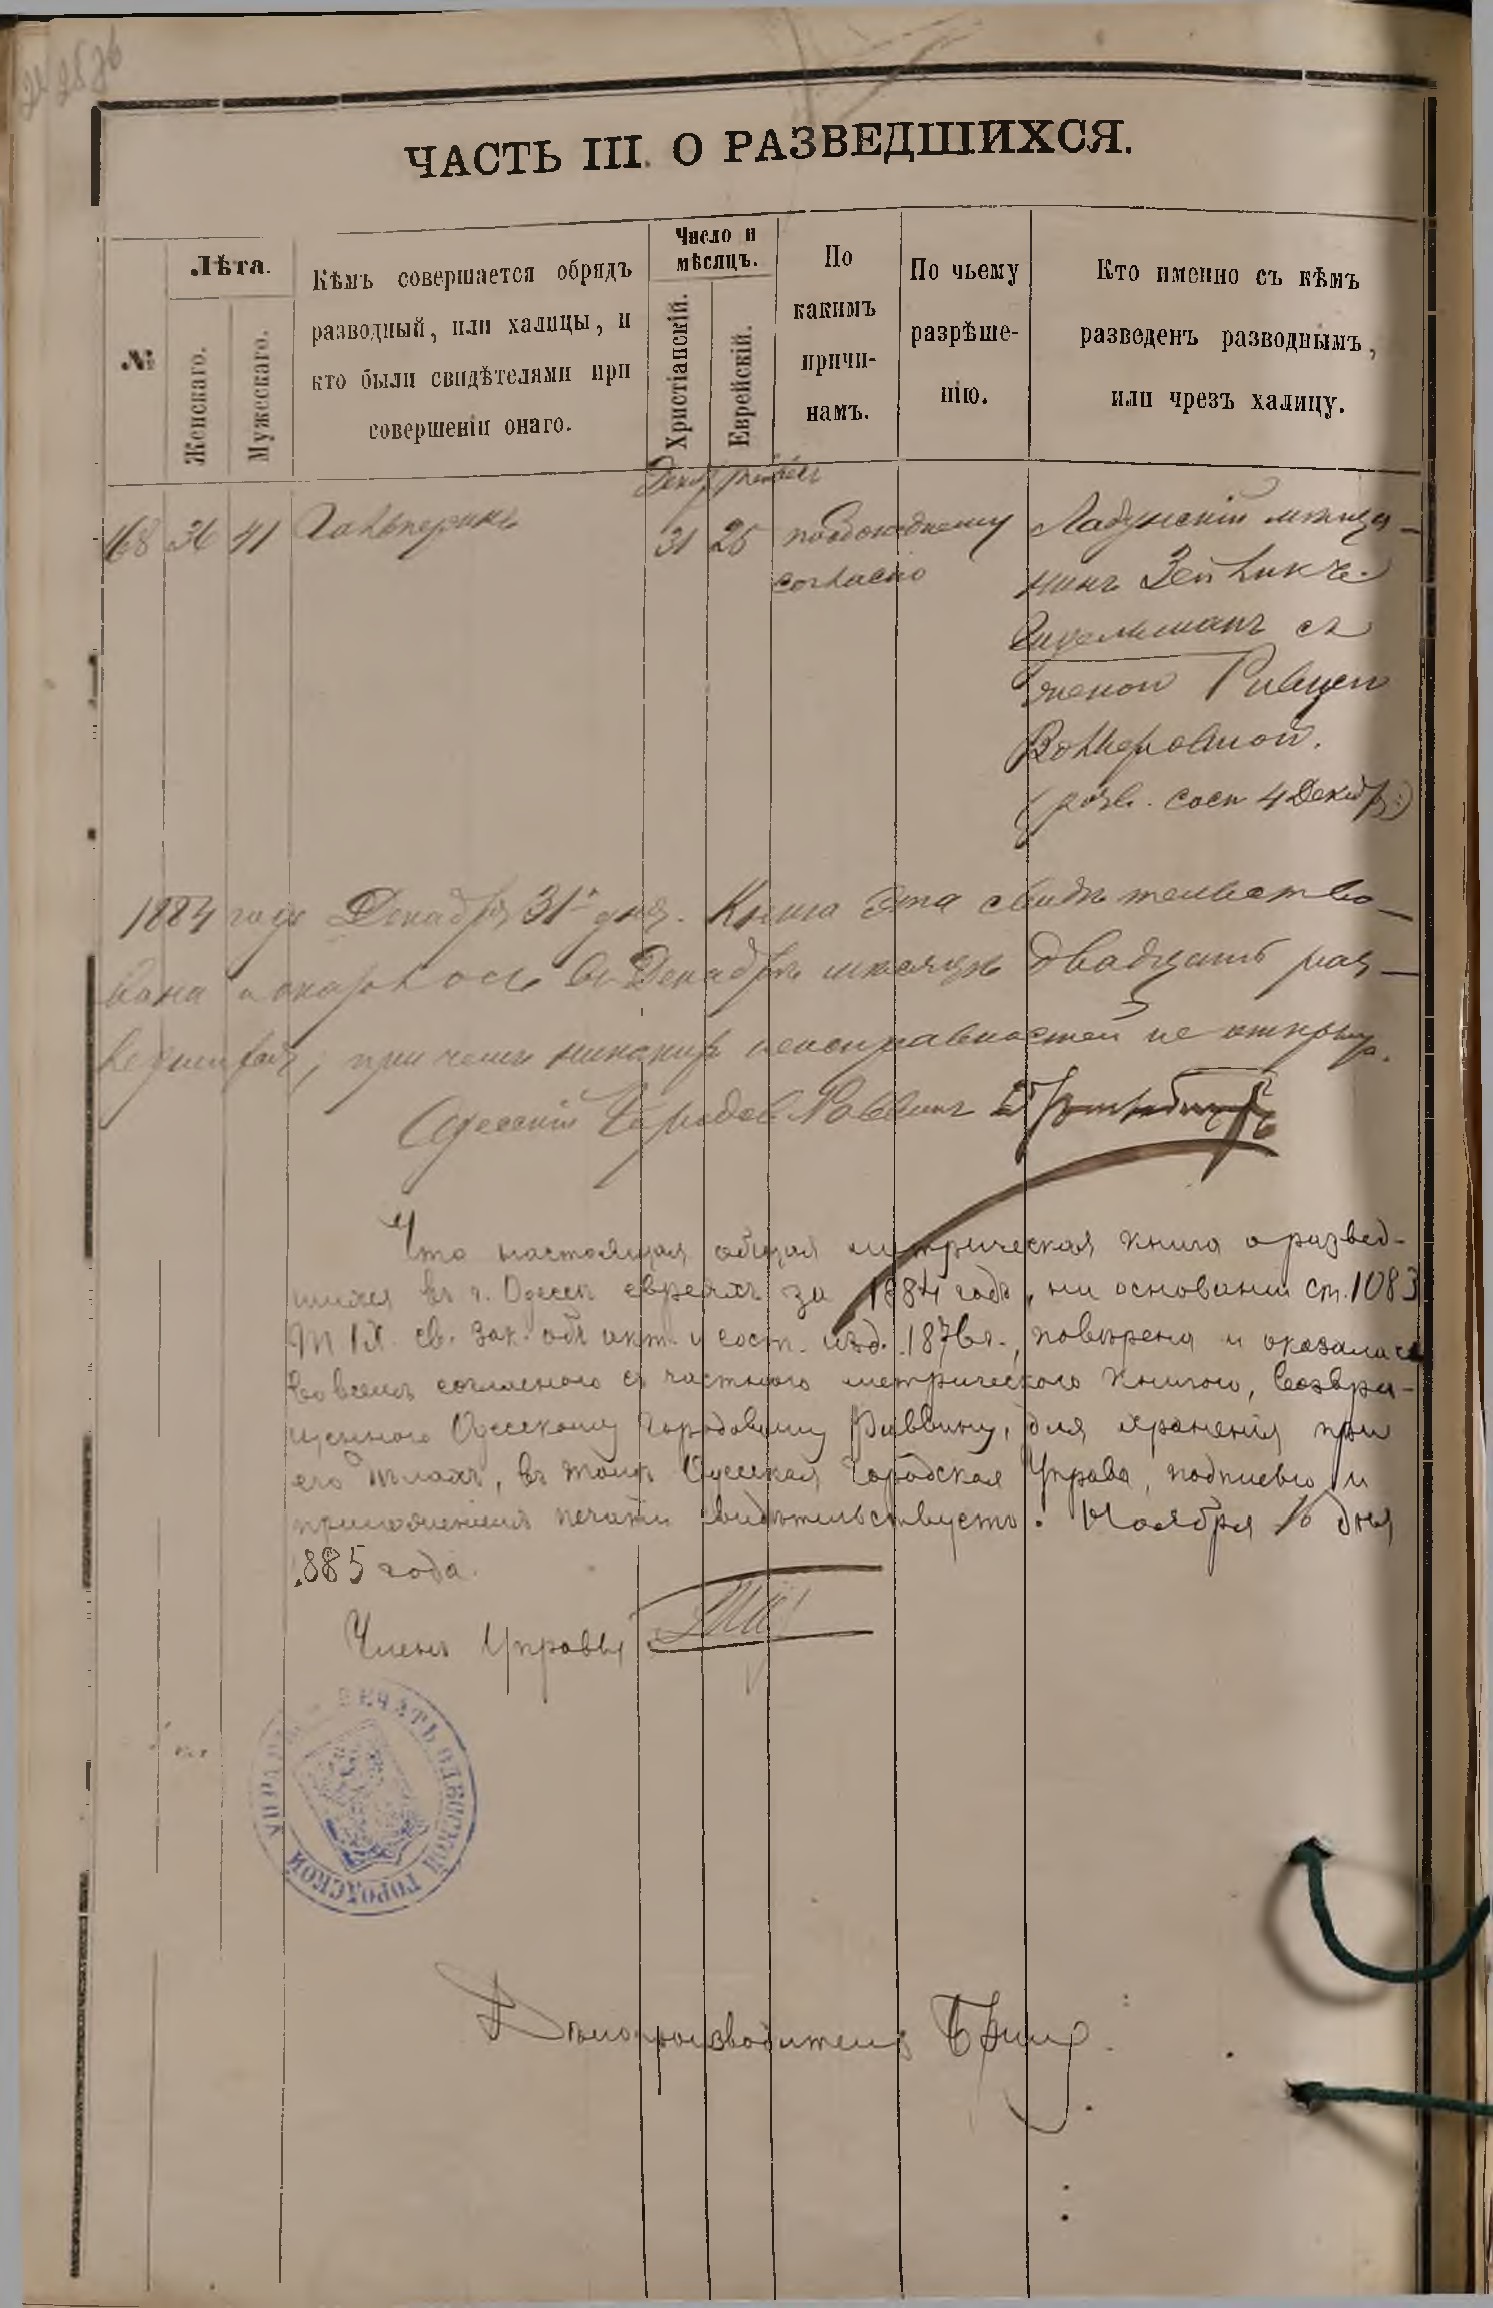 ЧАСТЬ III. О РАЗВЕДШИХСЯ.
№
Лѣта.
Женскаго.
Мужескаго.
Кѣмъ совершается обрядъ
разводный, или халицы, и
кто были свидѣтелями при
совершеніи онаго.
Число и
мѣсяцъ.
Христіанскій.
Еврейскій.
По
какимъ
причи-
намъ.
По чьему
разрѣше-
нію.
Кто именно съ кѣмъ
разведенъ разводнымъ,
или чрезъ халицу.
168 36 41 Гальперинъ 31 25 по обоюдному
согласію
Лабунскій мѣща-
нинъ
съ
женою Ривцею
Вольфовной.
(разв. сост 4 Декабр.)
1884 года Декабря 31 дня. Книга эта свидѣтельство-
вана и оказалось въ Декабрѣ мѣсяцѣ двадцать раз-
, при чемъ никакихъ неисправностей не открыто.
Одесскій Городов. Раввинъ
Что настоящая общая метрическая книга о развед-
шихся въ г. Одессѣ евреяхъ за 1884 годъ, на основаніи ст. 1083
т. IX. св. зак. объ акт. и сост. изд. 1876 г., повѣрена и оказалась
во всемъ согласною съ частною метрическою книгою, возвра-
щенною Одесскому Городовому Раввину, для храненія при
его дѣлахъ, въ томъ Одесская Городская Управа, подписью и
приложеніемъ печати свидѣтельствуетъ. Ноября 16 дня
1885 года.
Членъ Управы
ПЕЧАТЬ ОДЕССКОЙ ГОРОДСКОЙ УПРАВЫ
Дѣлопроизводитель